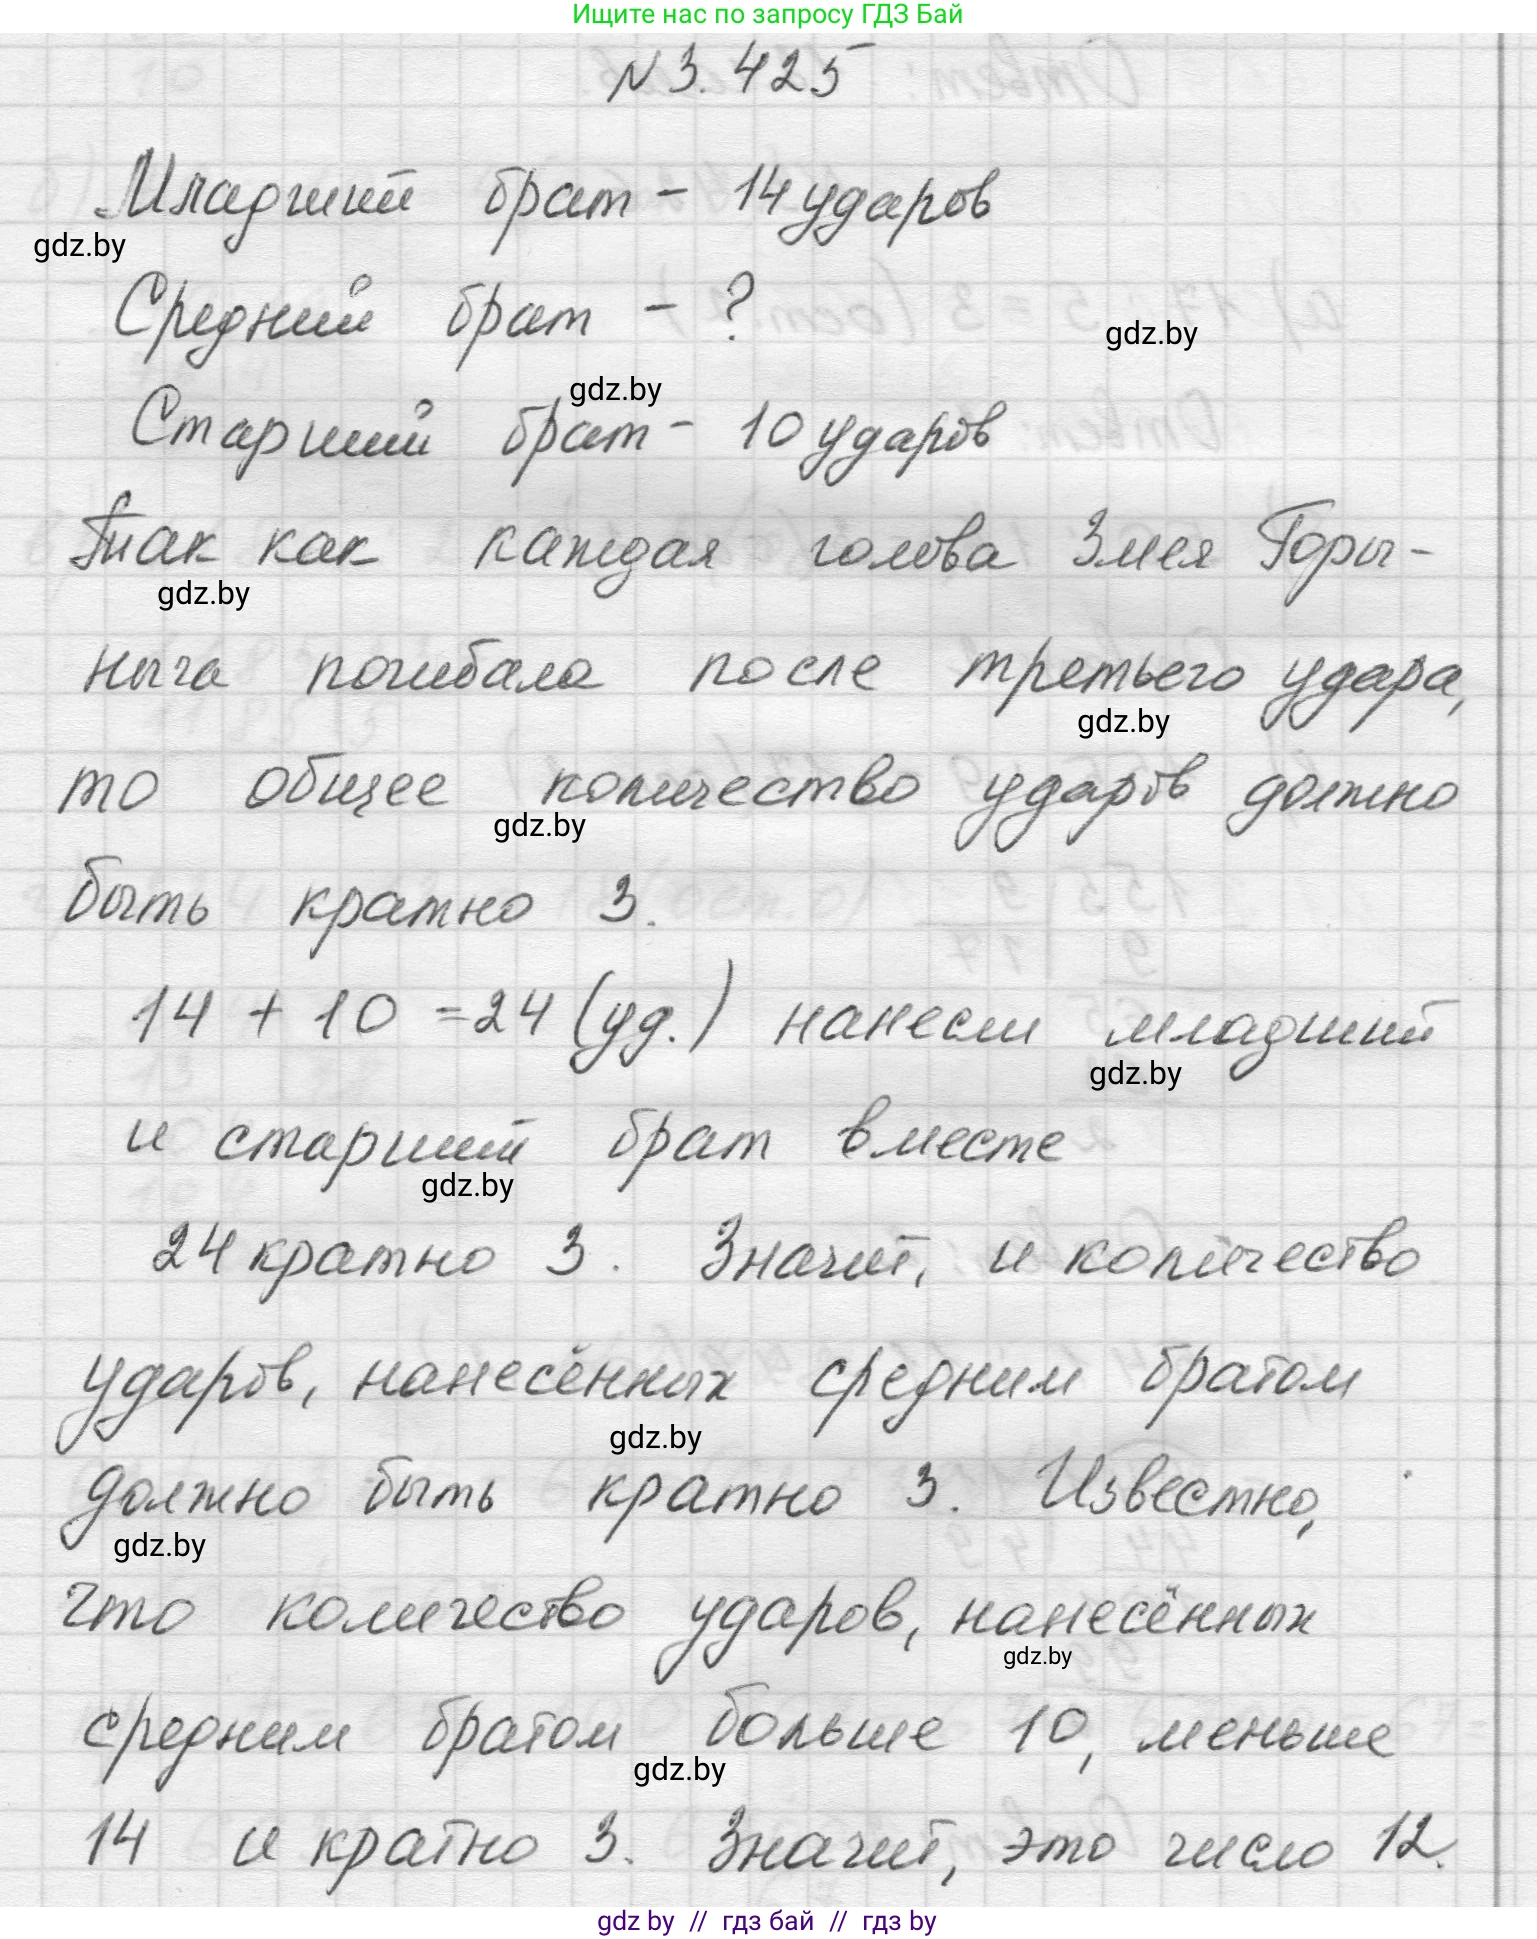 Ищите нас по запросу ГДЗ Бай
N 3.425
Младший брат - 14 ударов
gdz.by
Средний брат - ?
gdz.by
gdz.by
Старший брат - 10 ударов
Так как каждая голова Змея Горы-
gdz.by
ныча погибала после третьего удара,
gdz.by
то общее количество ударов должно
gdz.by
быть кратно 3.
14 + 10 = 24 (уд.) нанесли младший
gdz.by
и старший брат вместе
gdz.by
24 кратно 3. Значит, и количество
ударов, нанесённых средним братом
gdz.by
должно быть кратно 3. Известно,
gdz.by
что количество ударов, нанесённых
gdz.by
средним братом больше 10, меньше
gdz.by
14 и кратно 3. Значит, это число 12.
gdz by // гдз бай // гдз by